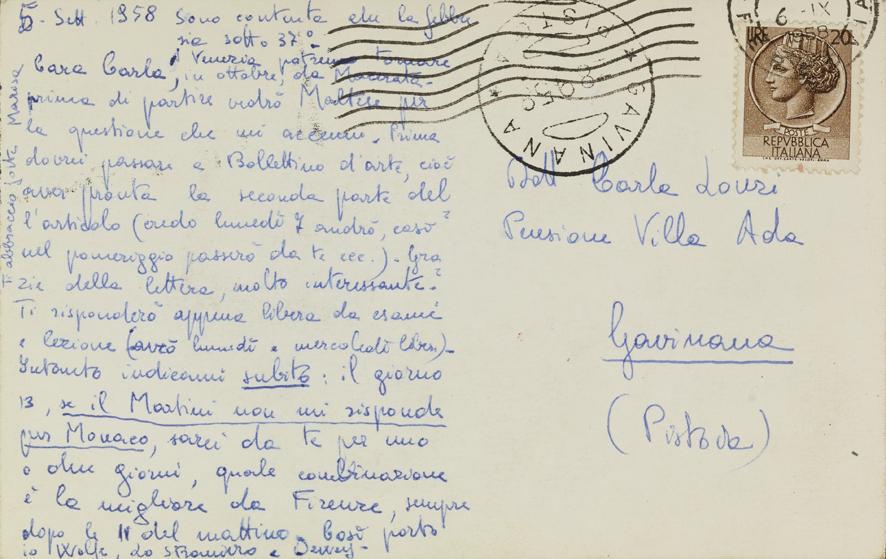 5- Sett 1958 Sono contenta che la febbre
sia sotto 37°-
a Venezia potremo tornare
Cara Carla, in ottobre, da Macerata.
prima di partire vedrò Maltese per
la questione che mi accenni. Prima
dovrei passare a Bollettino d'arte, cioè
aver pronta la seconda parte del
l'articolo (credo lunedì 7 andrò, così
nel pomeriggio passerò da te ecc.)- Gra
zie della lettera, molto interessante.
Ti risponderò appena libera da esame
e lezione (avrò lunedì e mercoledì liberi)-
Intanto indicami subito: il giorno
13, se il Martini non mi risponde
per Monaco, sarei da te per uno
o due giorni, quale combinazione
è la migliore da Firenze, sempre
dopo le 11 del mattino. Così porto
io Wolfe, lo Stramirro e Dewey-
Ti abbraccio forte Marisa
GAVINANA
PISTOIA
6 IX
1958
LIRE 20
POSTE
REPVBBLICA
ITALIANA
Dott Carla Lonzi
Pensione Villa Ada
Gavinana
(Pistoia)